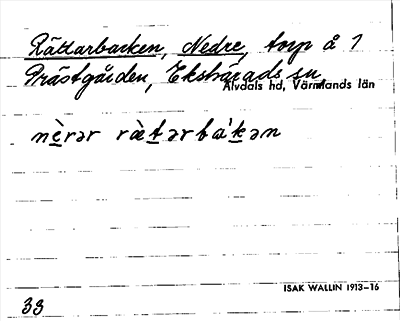 Rättarbacken, Nedre, torp å 1
Prästgården, Ekshärads sn,
Älvdals hd, Värmlands län
nè̱rər ræ̀t̲ərbáʹk̲ən
ISAK WALLIN 1913–16
33